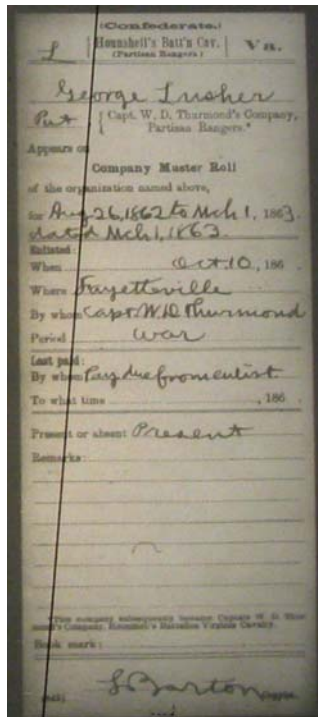 (Confederate.)
L Hounshell's Batt'n Cav. Va.
(Partisan Rangers.)
George Lusher
Pvt { Capt. W. D. Thurmond's Company,
Partisan Rangers.*
Appears on
Company Muster Roll
of the organization named above,
for Aug 26, 1862 to Mch 1, 1863.
dated Mch 1, 1863.
Enlisted:
When Oct 10, 186 .
Where Fayetteville
By whom Capt. W. D. Thurmond
Period war
Last paid:
By whom Pay due from enlist.
To what time , 186 .
Present or absent Present
Remarks:
*This company subsequently became Captain W. D. Thurmond's Company, Hounshell's Battalion Virginia Cavalry.
Book mark:
S Barton
Copyist.